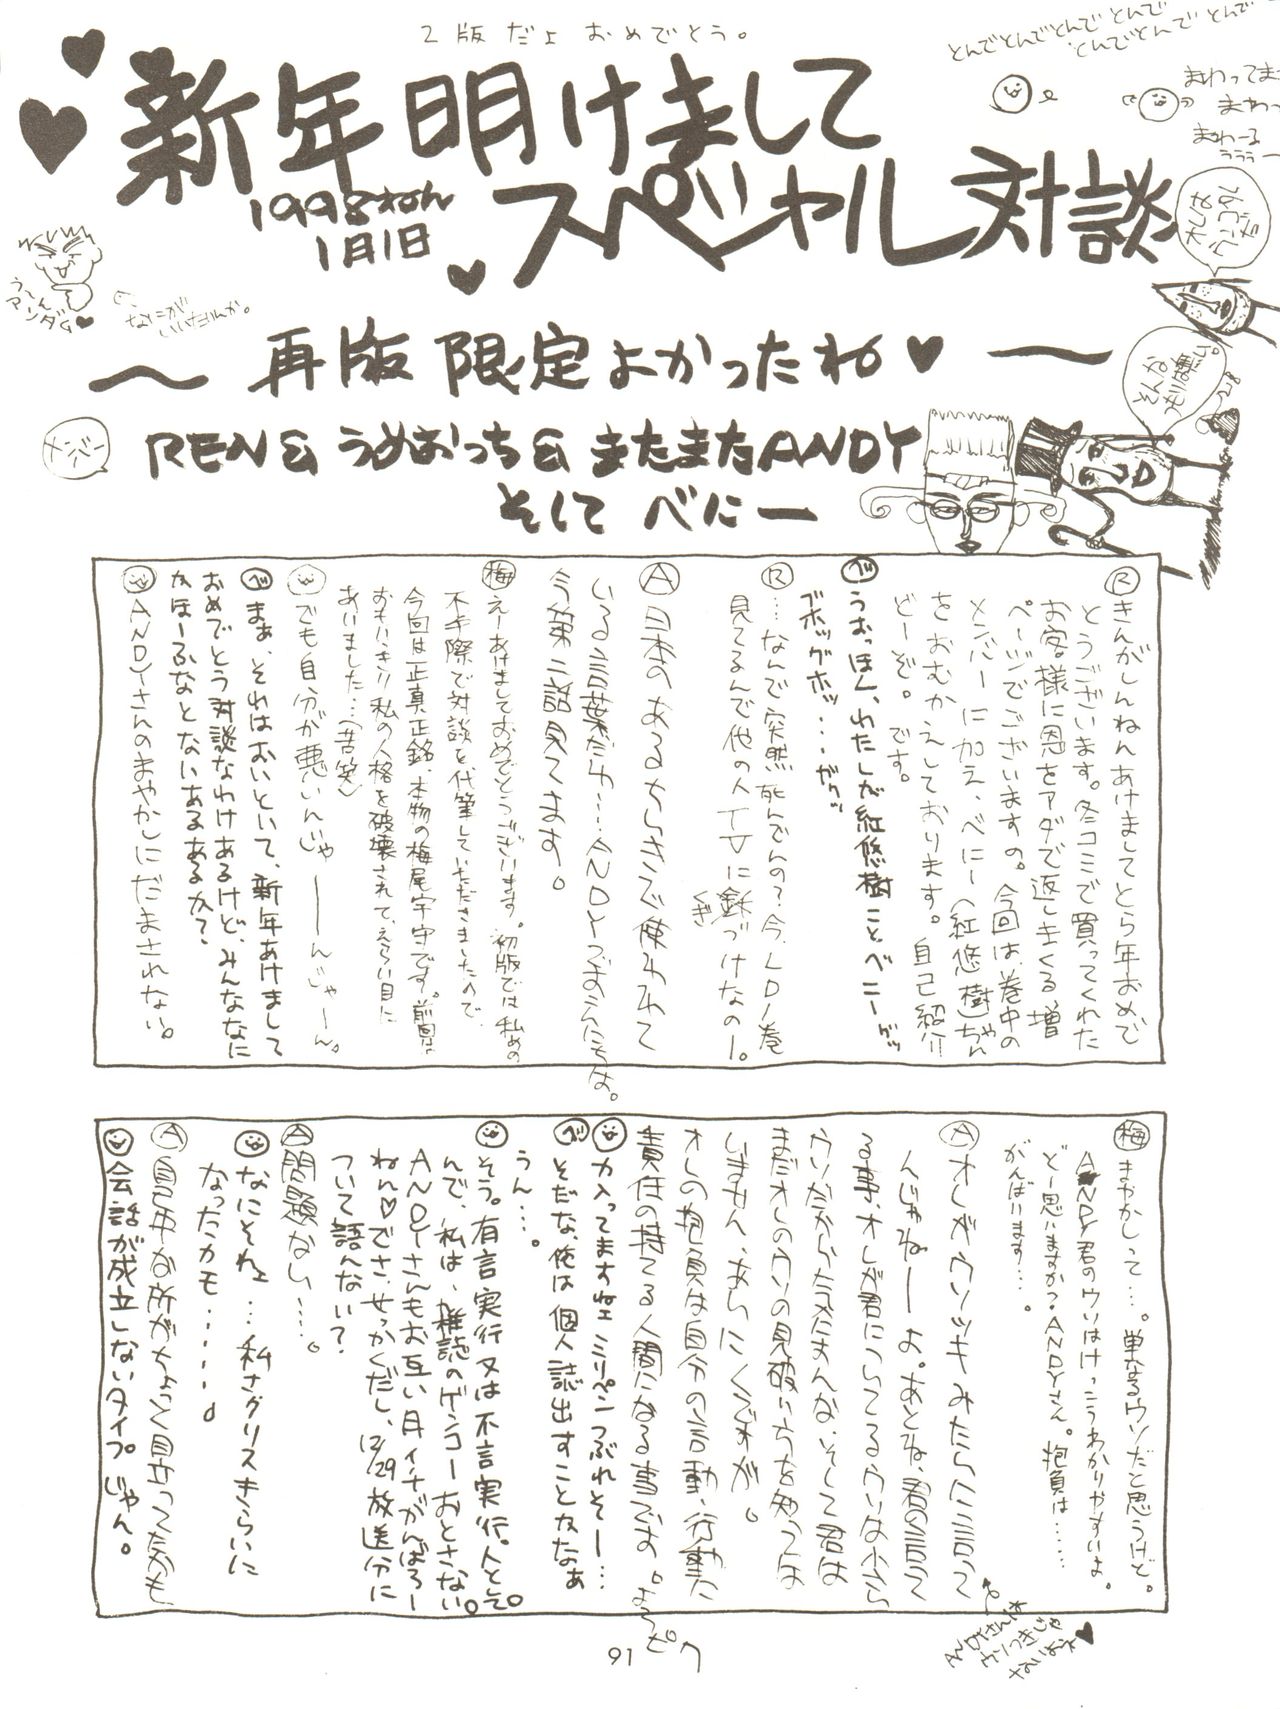 2版だよ おめでとう。
とんでとんでとんで とんで
とんでとんで とんで
まわってまわ
まわっ
まわーる
うううー
新年 明けまして
スペシャル 対談
1998ねん
1月1日
うーん
マンダム♥
なにが
いいだんか。
〜 再版 限定 よかったね ♥ 〜
そんな
つもりは無い。
メンバー
REN& うめおっち& またまたANDY
そして べにー
Ⓡきんがしんねんあけましてとら年おめで
とうございます。冬コミで買ってくれた
お客様に恩をアダで返しまくる増
ページでございますの。今回は、巻中の
メンバーに加え、べにー(紅悠樹)ちゃん
をおむかえしております。自己紹介
どーぞ。です。
べうおっほん、わたしが紅悠樹ことべニーゲッ
ブホッグホッ....ガクッ
Ⓡ…なんで突然死んでんの?今、LD1巻
見てるんで他の人TVに釘づけなのー。
くぎ
Ⓐ日本のあるちいきで使われて
いる言葉だわ...ANDYでまえんたちは。
今第二話見てます。
梅えーあけましておめでとうございます。初版では私めの
不手際で対談を代筆していただきましたので、
今回は正真正銘、本物の梅尾宇守です。前回は
おもいっきり私の人格を破壊されて、えらい目に
あいました...(苦笑)
でも自分が悪いんじゃーーんじゃーん。
べまあ、それはおいといて、新年あけまして
おめでとう対談なわけあるけど、みんななに
かほーふなとないあるあるか?
ANDYさんのまやかしにだまされない。
梅まやかしって…。単なるウソだと思うけど。
ANDY君のウソはけっこうわかりやすいよ。
どー思いますか?ANDYさん。抱負は……
がんばります…。
Ⓐオレがウソツキみたいに言って
んじゃねーよ。あとね、君の言って
る事、オレが君についてるウソは少ない
ウソだからたえたまんな、そして君は
まだオレのウソの見破い方を知っては
いまへん、あしにくですが。
オレの抱負は自分の言動、行動に
責任の持てる人間になる事です。
力入ってますねェ ミリペンつぶれそー…
べそだな、俺は個人誌出すことかなぁ
うん…。
そう。有言実行又は不言実行。人として。
んで、私は、雑誌のゲンコーおとさない
ANDYさんもお互い月イチがんばろー
ねん♡でさ、せっかくだし、12/29放送分に
ついて語んない?
Ⓐ問題ない…。
なにそれェ…私さグリスきらいに
なったカモ……。
Ⓐ自己中な所がちょっと目立ってたかも
会話が成立しないタイプじゃん。
91